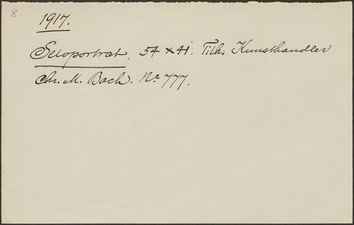 8
1917.
Selvportræt. 54 × 41. Tilh. Kunsthandler
Chr. M. Bach. No 777.